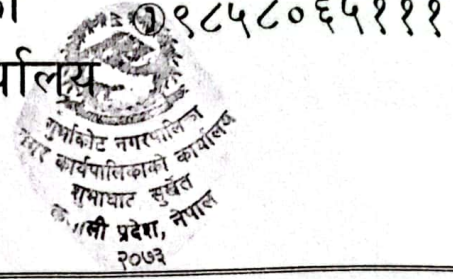 ९८५८०६५१११
र्यालय
गुर्भाकोट नगरपालिका
नगर कार्यपालिकाको कार्यालय
गुभाघाट सुर्खेत
प्रदेश, नेपाल
२०७३